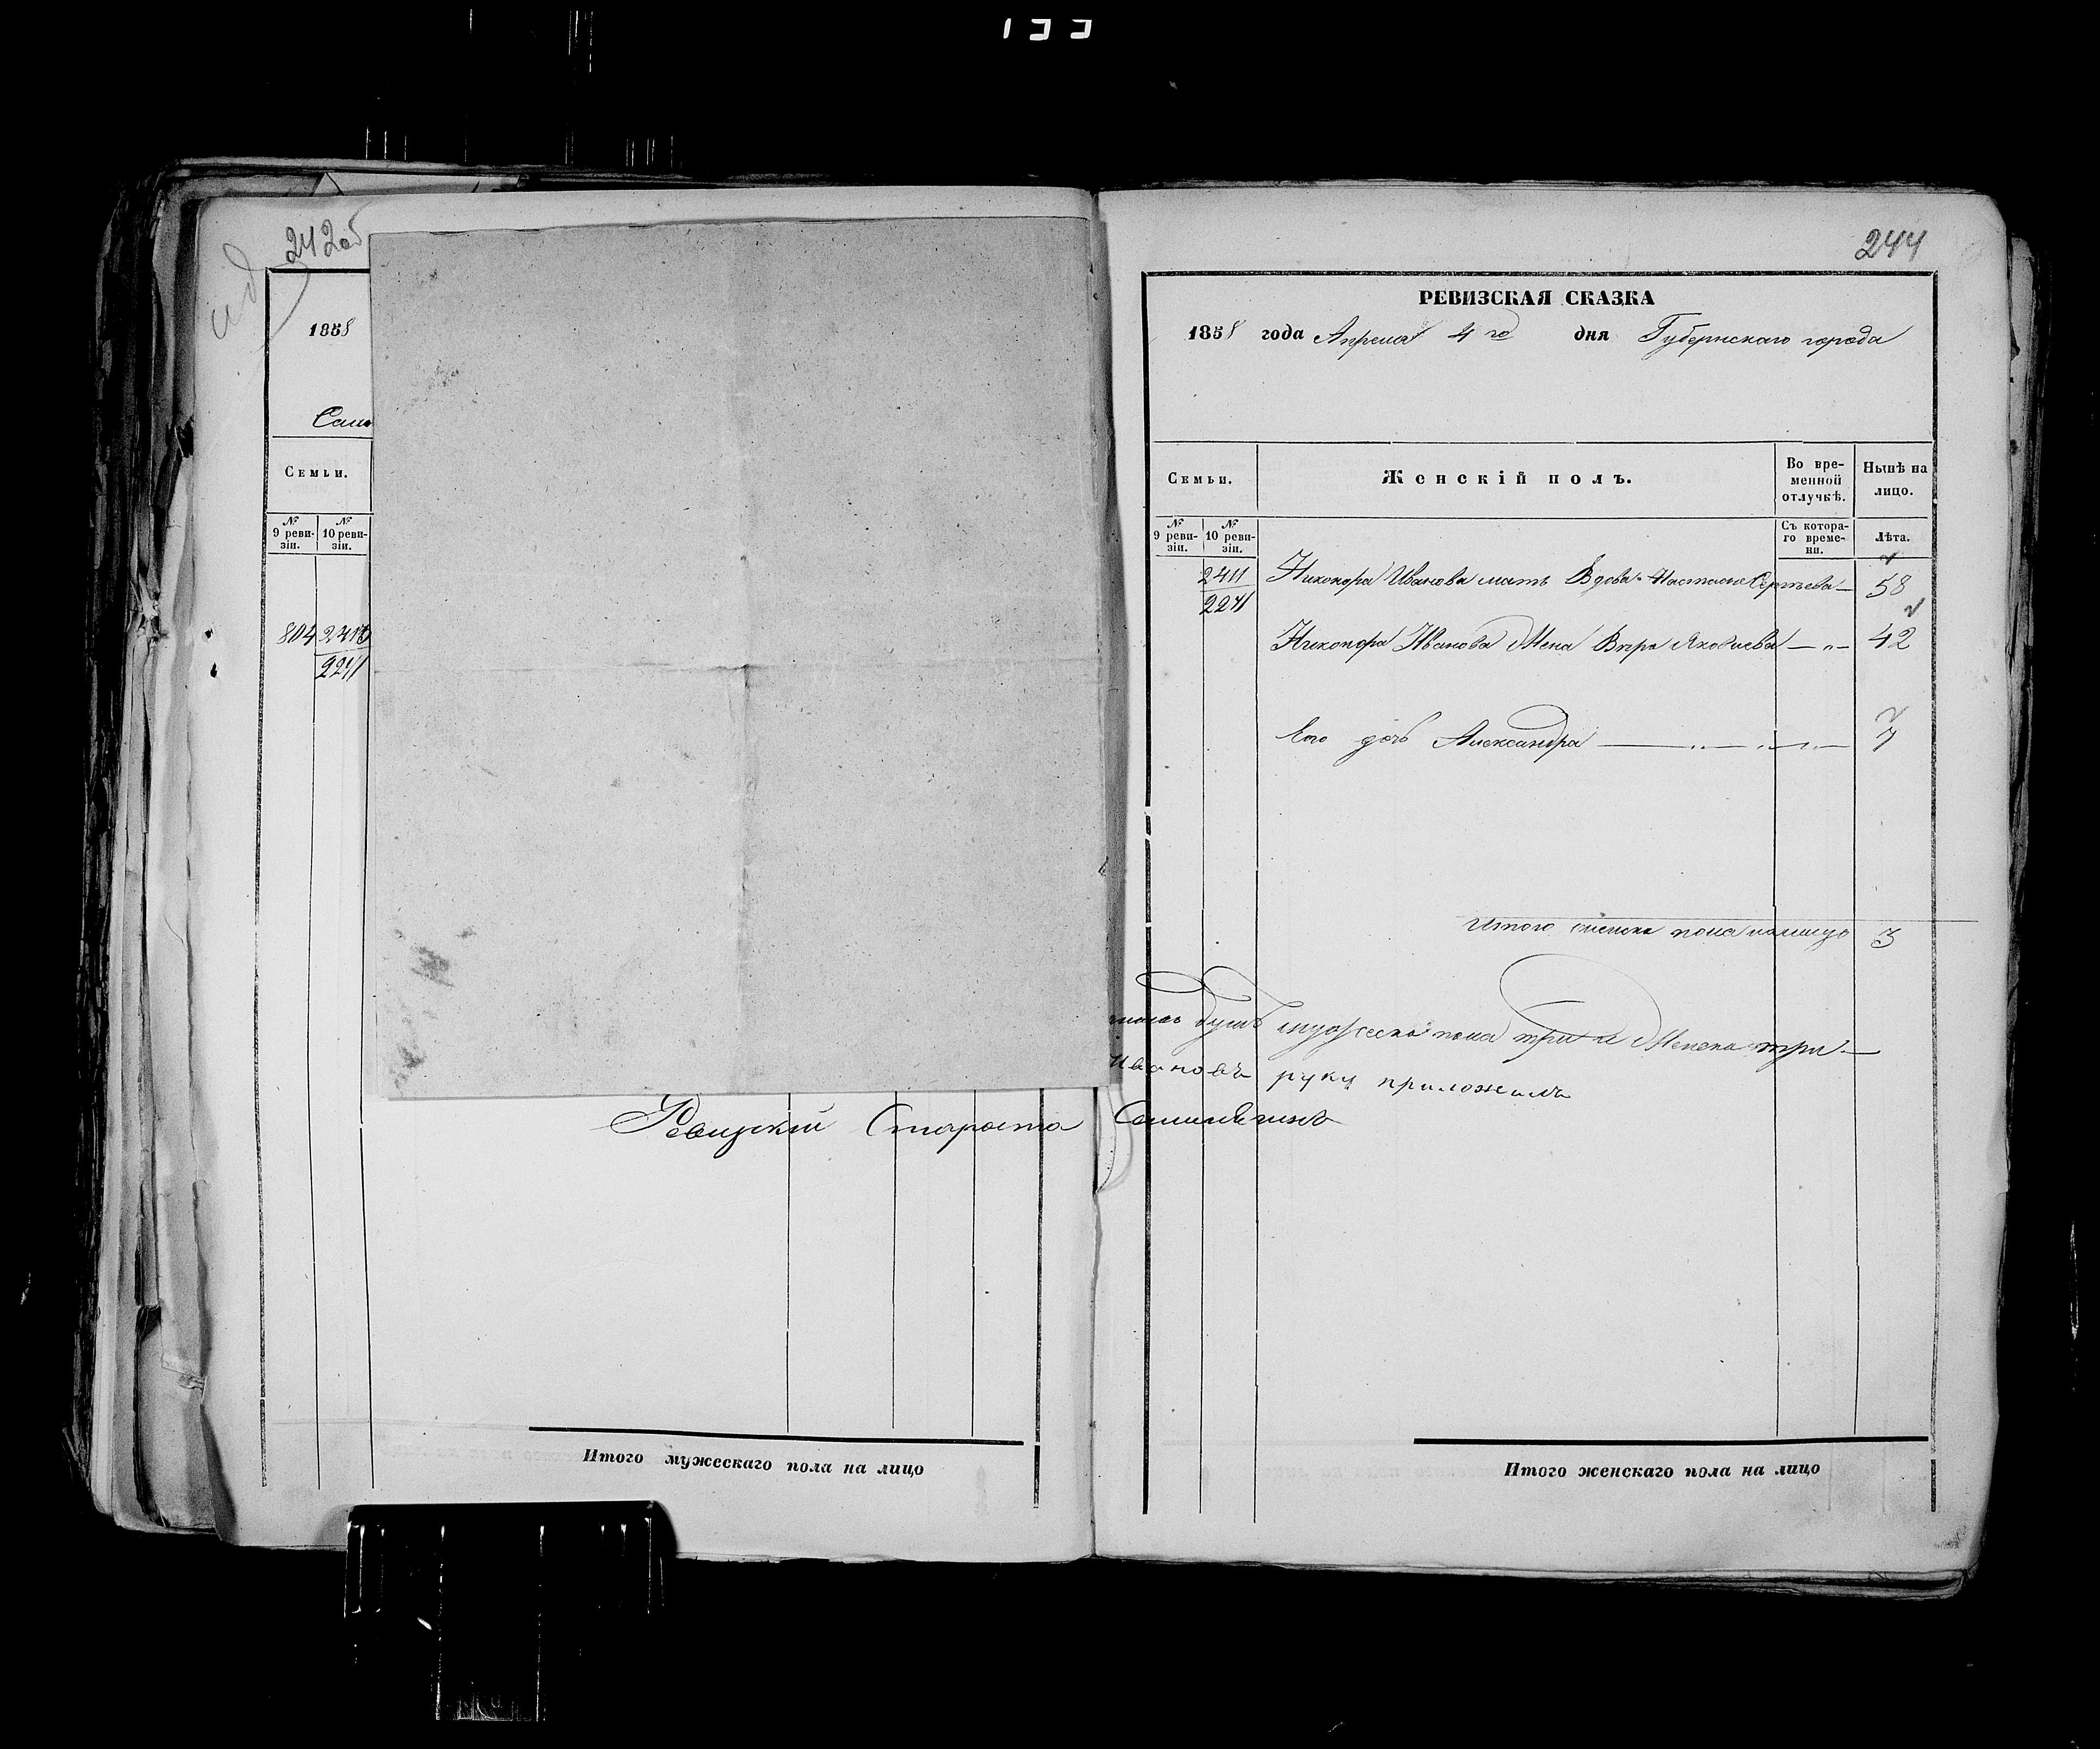 133
242об
1858
Семьи.
№ 9 ревизіи.
№ 10 ревизіи.
804
2241
Ревизскій Староста
Итого мужескаго пола на лицо
244
РЕВИЗСКАЯ СКАЗКА
1858 года Апреля 4го дня Губернскаго города
Семьи.
Женскій полъ.
Во временной отлучкѣ.
Нынѣ на лицо.
№ 9 ревизіи.
№ 10 ревизіи.
Съ котораго времени.
Лѣта.
2411 Никонора Иванова мать Вдова Настасья Сергѣева — 58
2241
Никонора Иванова Жена Вѣра Яковлева — „ — 42
Его дочь Александра — „ — „ — „ — 7
Итого женска пола налицо 3
душъ мужеска пола три а Женска три —
Ивановъ руку приложилъ
Итого женскаго пола на лицо